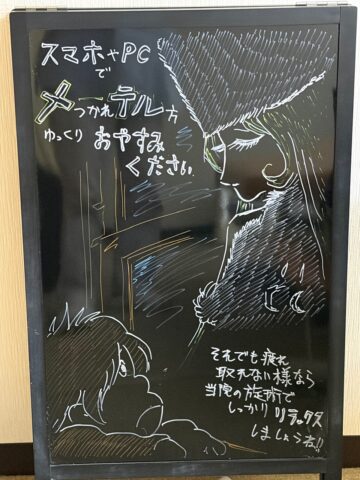 スマホやPC
で
メーつかれテル方
ゆっくり おやすみ
ください
それでも疲れ
取れない様なら
当院の施術で
しっかりリラックス
しましょうね!!